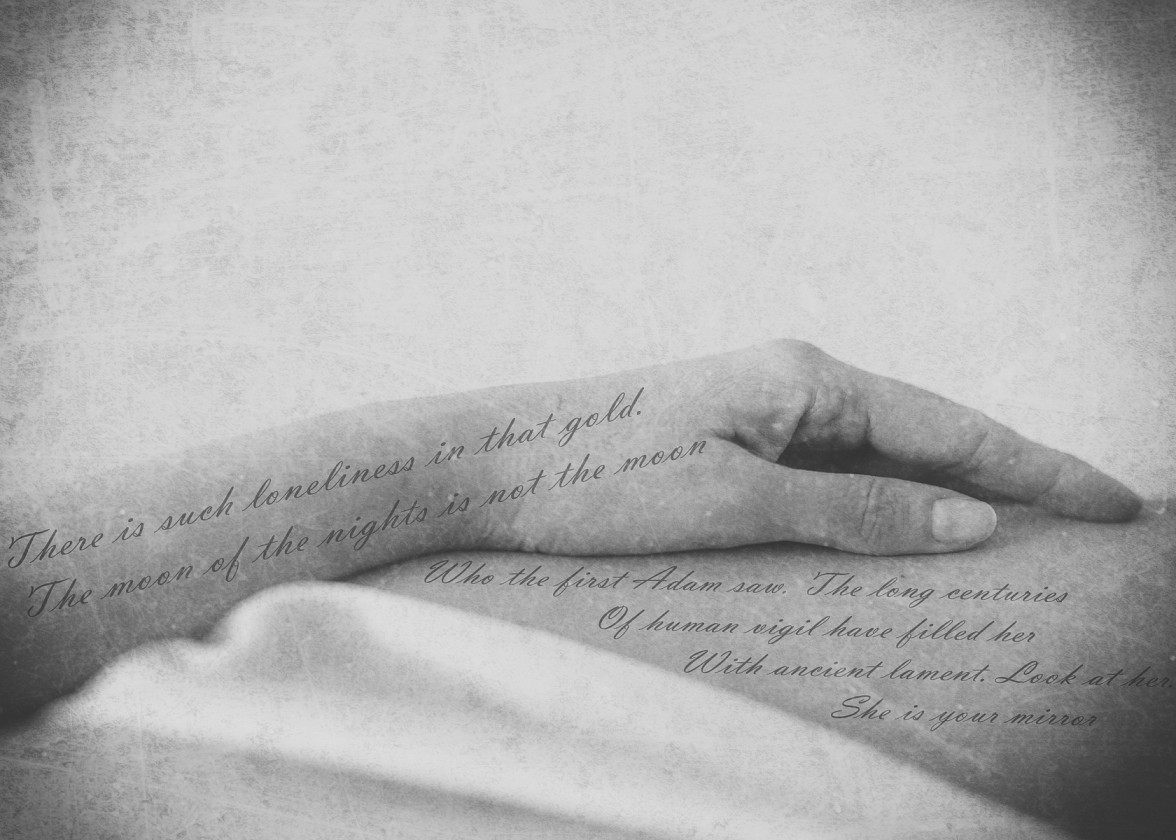 There is such loneliness in that gold.
The moon of the nights is not the moon
Who the first Adam saw. The long centuries
Of human vigil have filled her
With ancient lament. Look at her
She is your mirror